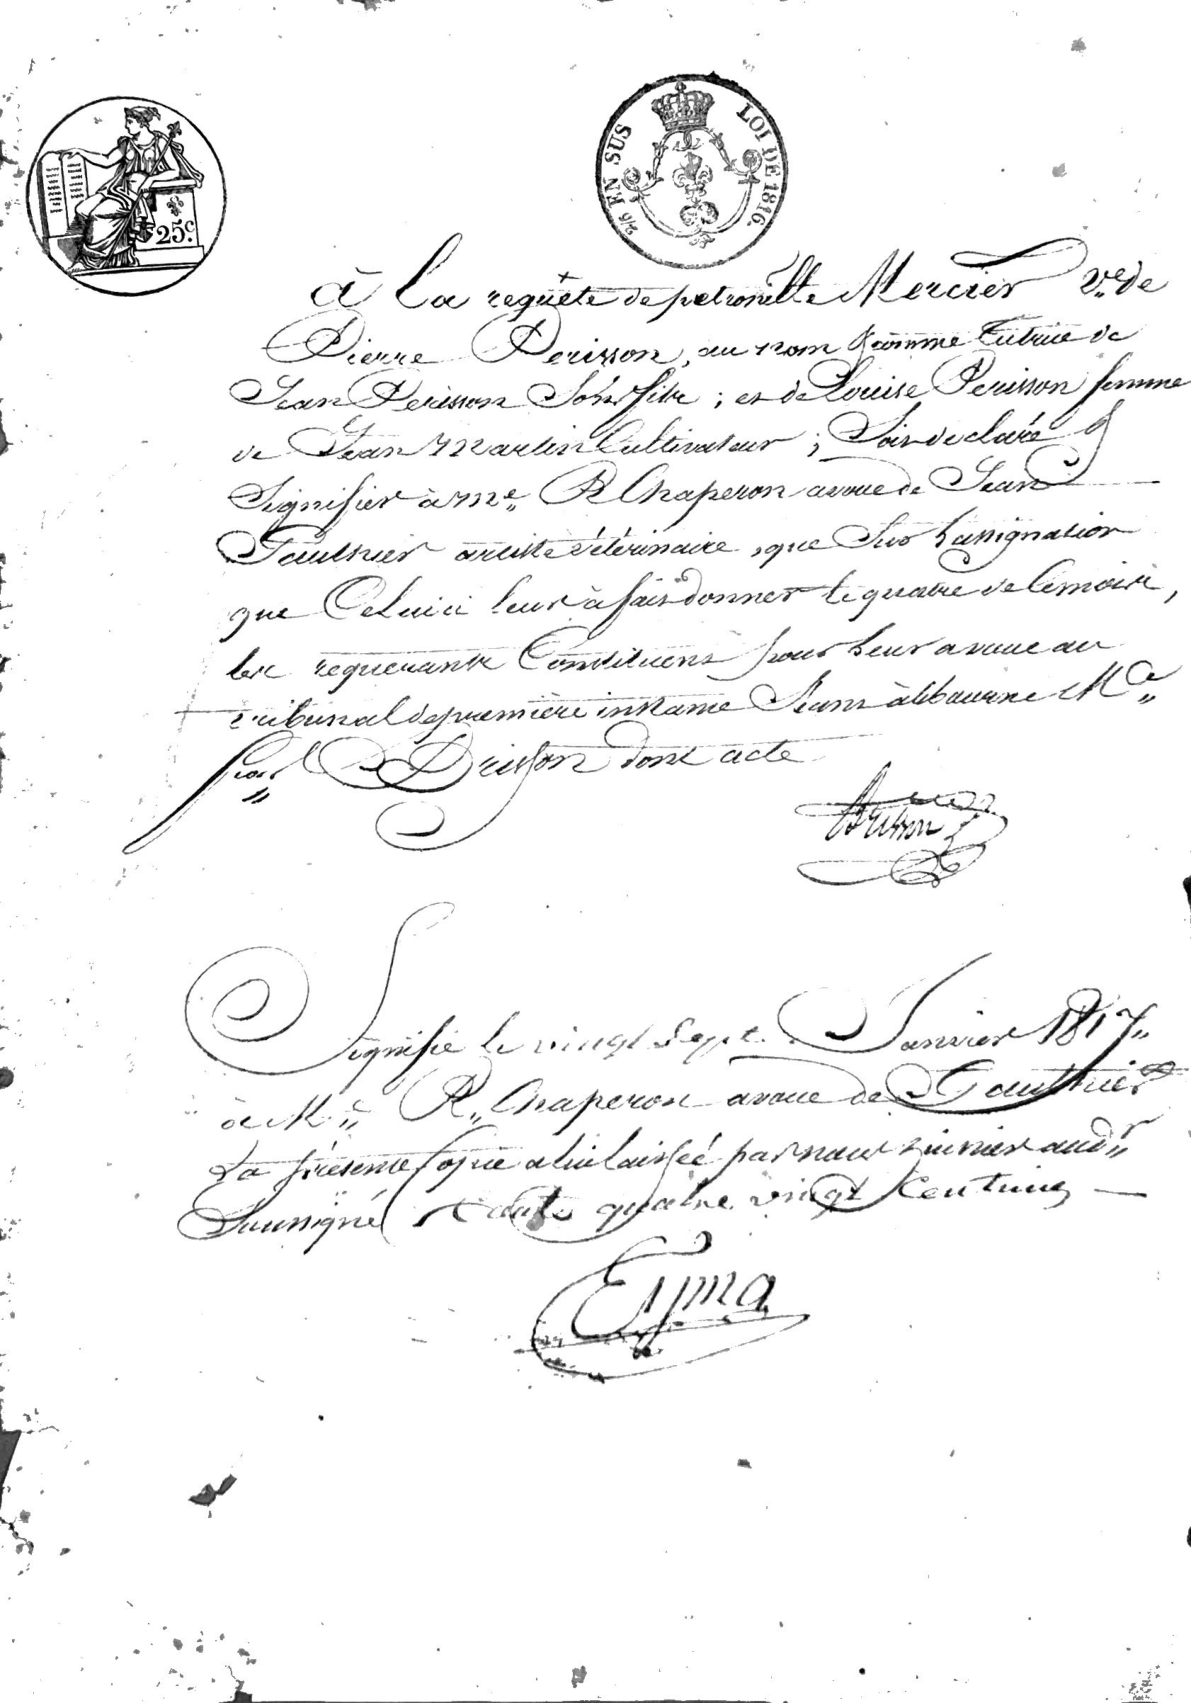 25c.
2/5 EN SUS LOI DE 1816.
à la requête de petronille Mercier Ve. de
Pierre Perisson, au nom & comme Tutrice de
Jean Perisson Son fils ; et de Louise Perisson femme
de Jean Martin Cultivateur ; Soit declaré &
Signifier à Me. R. Chaperon avoué de Jean
Gauthier artiste vétérinaire, que Sur L'assignation
que Celui ci leur à fait donner le quatre de Ce mois,
les requerants Constituent pour Leur avoué au
tribunal de première instance Seant à Libourne Me.
Brisson dont acte
Brisson
Signifié le vingt Sept Janvier 1817.
à Me. R. Chaperon avoué de Gauthier
La présente Copie a lui laissée par nous huissier audr.
Soussigné Coute quatre vingt Centimes
Eyma